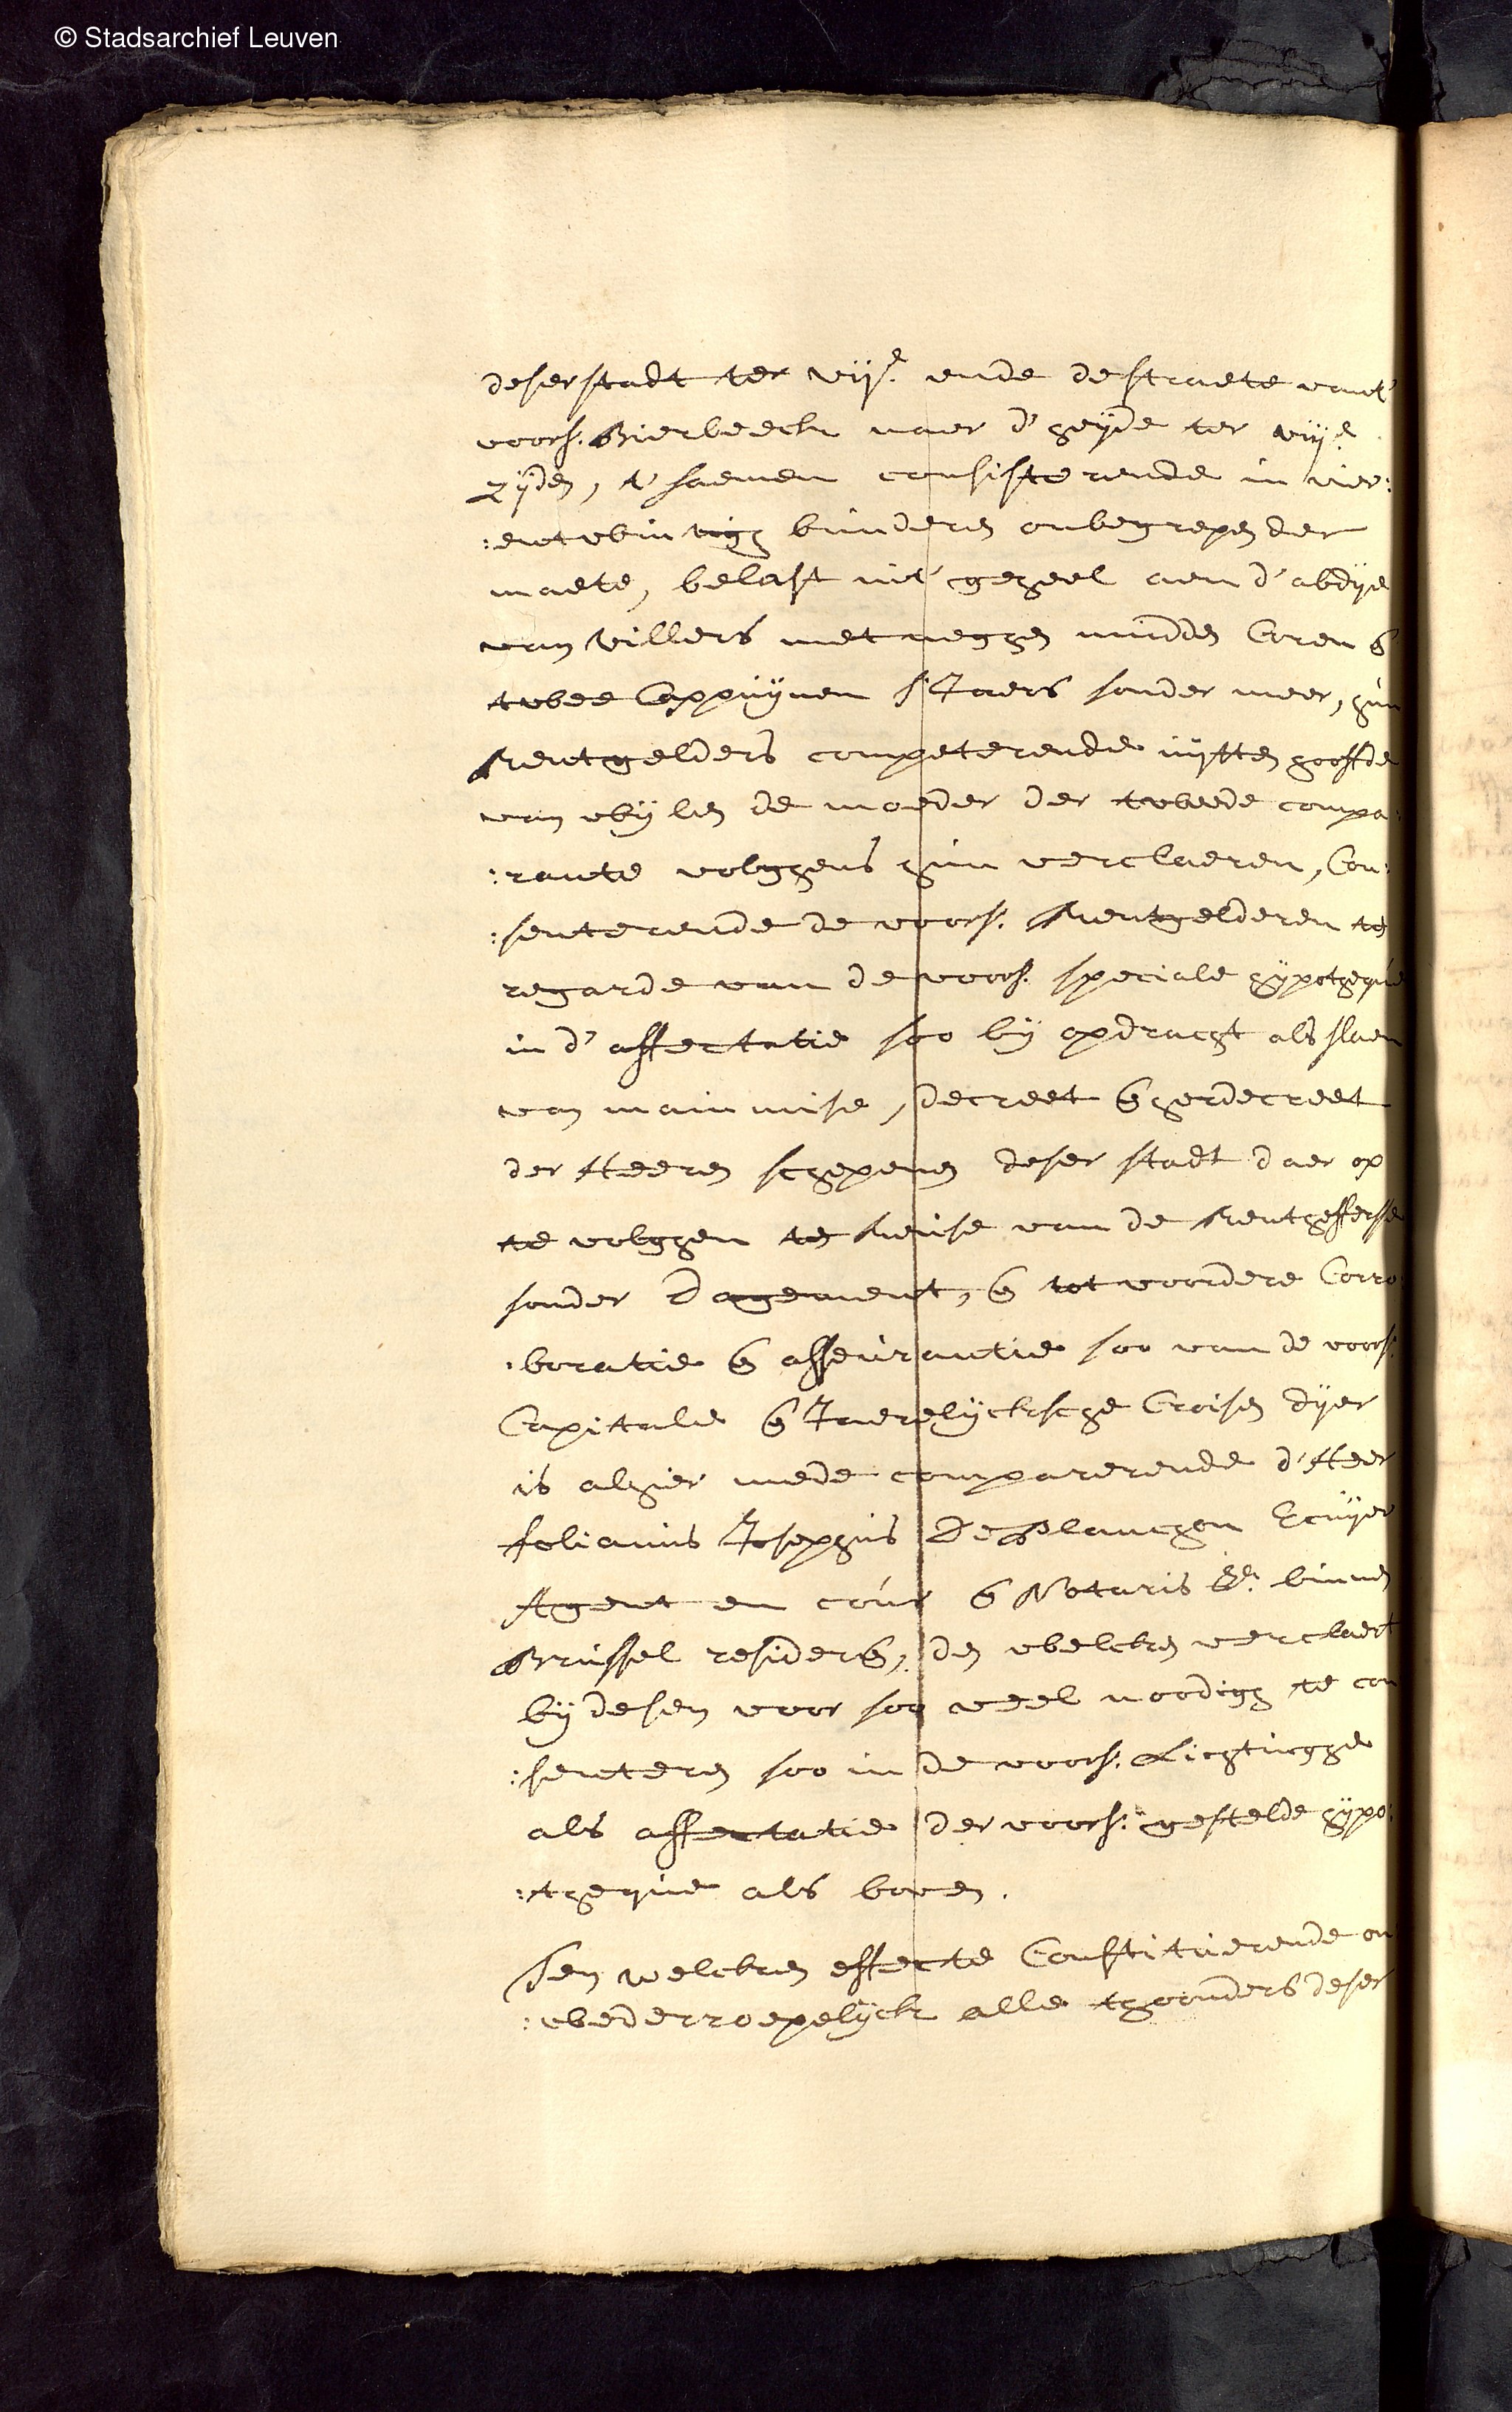 © Stadsarchief Leuven
deser stadt ter vije. ende de straete vant'
voors. Bierbeeck naer d'heijde ter viije.
zijden, t'saemen consisterende in vier:
:entwintigh bunderen onbegrepen der
maete, belast int' geheel aen d'abdije
van Villers met neghen mudden Coren en
twee Cappuijnen s'Jaers sonder meer, hun
Rentgelders competerende uijtten hooffde
van wijlen de moeder der tweede compa:
:rante volghens hun verclaeren, Con:
:senterende de voors. Rentgelderen ten
regarde van de voors. speciale hijpotheque
in d'affectatie soo bij opdracht als slaen
van mainmise, decreet en herdecreet
der Heeren schepenen deser stadt daer op
te volghen ten keuse van de Rentheffersse
sonder Dagement, en tot voordere Corro:
:boratie en asseurantie soo van de voors.
Capitale en Jaerelijcksche Croisen dijer
is alhier mede comparerende d'Heer
Josephus De Planchon Ecuijer
Agent en cour en Notaris binnen
Brussel resideren, den welcken verclaert
bij desen voor soo veel noodigh te con
:senteren soo in de voors. Lichtinghe
als affectatie der voors. gestelde hijpo:
:theque als boven.
Ten welcken effecte Constituerende on
:wederroepelijck alle thoonders deser